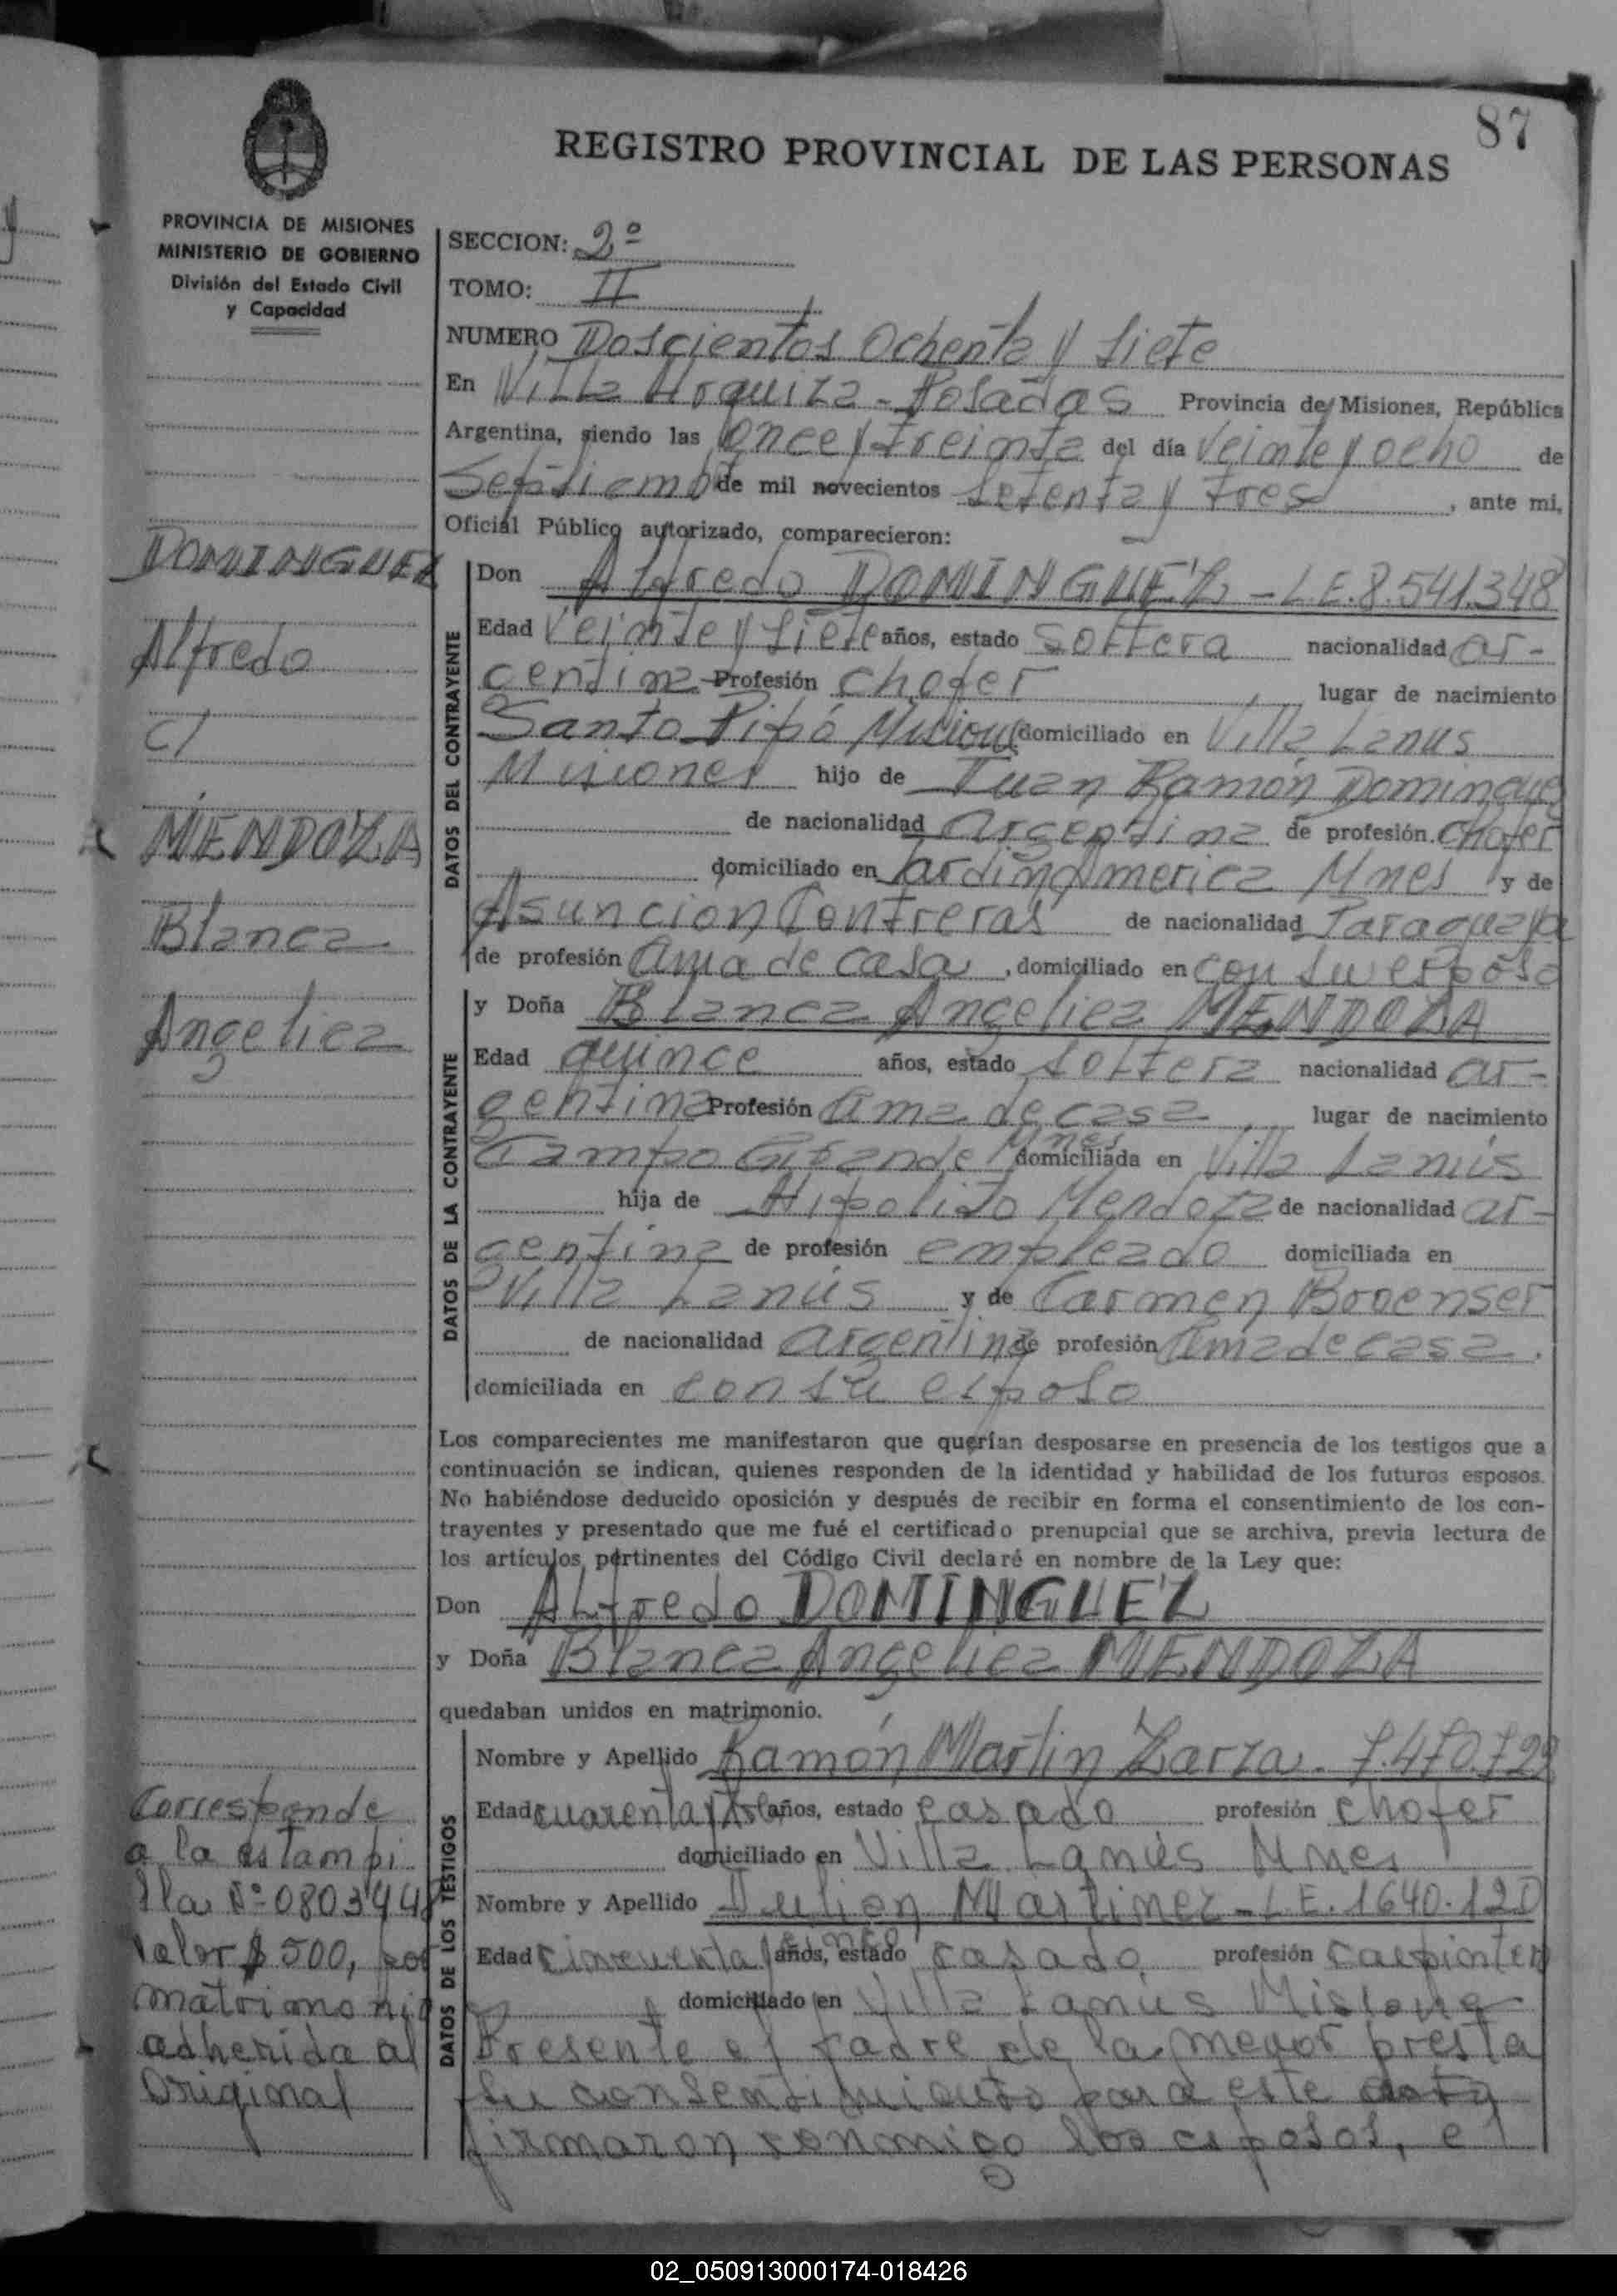 87
REGISTRO PROVINCIAL DE LAS PERSONAS
PROVINCIA DE MISIONES
MINISTERIO DE GOBIERNO
División del Estado Civil
y Capacidad
SECCION: 2º
TOMO: II
NUMERO Doscientos Ochenta y siete
En Villa Urquiza - Posadas Provincia de Misiones, República
Argentina, siendo las once y treinta del día Veinte y ocho de
Septiembre de mil novecientos setenta y tres, ante mi,
Oficial Público autorizado, comparecieron:
DOMINGUEZ
Alfredo
c/
MENDOZA
Blanca
Angelica
DATOS DEL CONTRAYENTE
Don Alfredo DOMINGUEZ - L.E. 8.541.348
Edad Veinte y siete años, estado soltero nacionalidad ar-
gentina Profesión chofer, lugar de nacimiento
Santo Pipó Misiones domiciliado en Villa Lanus
Misiones hijo de Juan Ramón Dominguez
de nacionalidad argentina de profesión chofer
domiciliado en Jardin America Mnes y de
Asuncion Contreras de nacionalidad Paraguaya
de profesión ama de casa, domiciliado en con su esposo
DATOS DE LA CONTRAYENTE
y Doña Blanca Angelica MENDOZA
Edad quince años, estado soltera nacionalidad ar-
gentina Profesión ama de casa, lugar de nacimiento
Campo Grande Mnes domiciliada en Villa Lanús
hija de Hipolito Mendoza de nacionalidad ar-
gentina de profesión empleado domiciliada en
Villa Lanús y de Carmen
de nacionalidad argentina de profesión ama de casa.
domiciliada en con su esposo
Los comparecientes me manifestaron que querían desposarse en presencia de los testigos que a
continuación se indican, quienes responden de la identidad y habilidad de los futuros esposos.
No habiéndose deducido oposición y después de recibir en forma el consentimiento de los con-
trayentes y presentado que me fué el certificado prenupcial que se archiva, previa lectura de
los artículos pertinentes del Código Civil declaré en nombre de la Ley que:
Don Alfredo DOMINGUEZ
y Doña Blanca Angelica MENDOZA
quedaban unidos en matrimonio.
DATOS DE LOS TESTIGOS
Nombre y Apellido Ramón Martin Zarza. 7.470.729
Edad cuarenta y tres años, estado casado profesión chofer
domiciliado en Villa Lanús Mnes
Nombre y Apellido Julian Martinez - L.E. 1640.120
Edad cincuenta y cinco años, estado casado profesión carpintero
domiciliado en Villa Lanus Misiones
Presente el padre de la menor presta
su consentimiento para este acto y
firmaron conmigo los esposos, el
Corresponde
a la estampi
lla Nº 0803448
Valor $ 500, por
matrimonio
adherida al
original
02_050913000174-018426